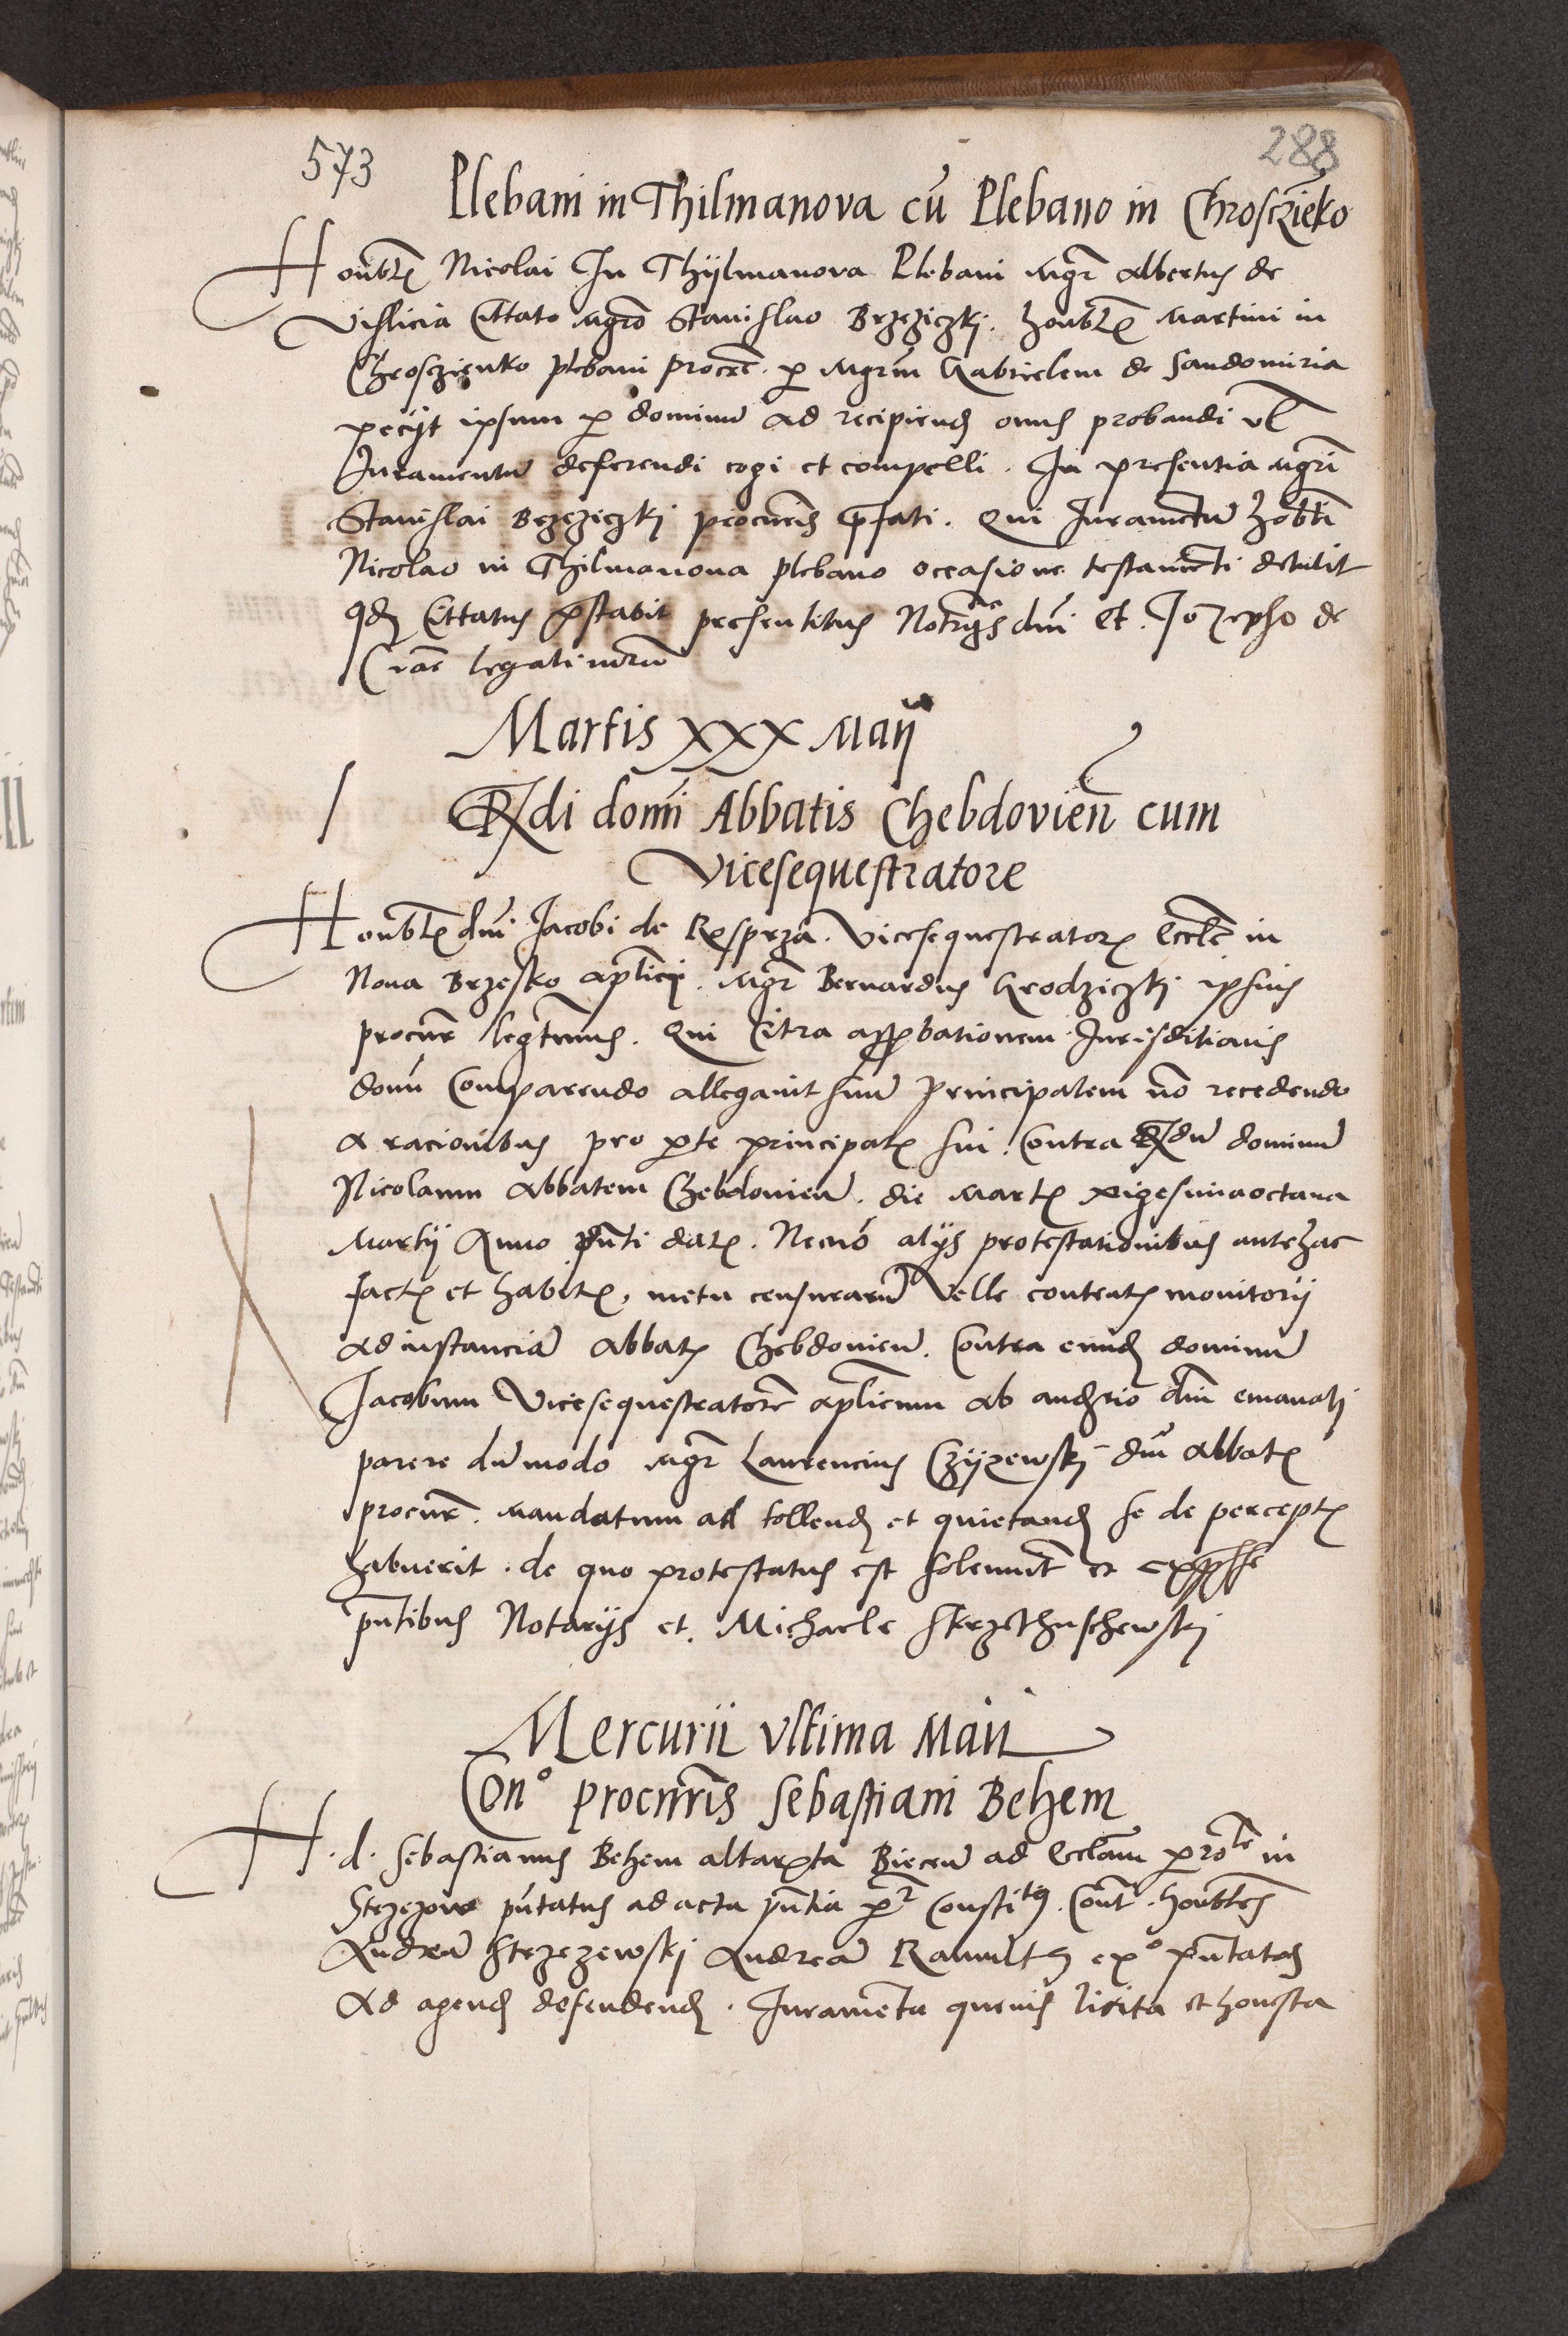 573
288
Plebani in Thilmanova cũ Plebano in Chrosczieko
Honbł Nicolai In Thijlmanova Plebani Mgr Albertus de
Vislicia Cittato Mgrõ Stanislao Brzeziczkj. honbł Martini in
Chrosczienko plebani procre. p Mgrũm Gabrielem de Sandomiria
pecijt ipsum p dominũ ad recipiend onus probandi vl
Juramentũ deferendi cogi et compelli. In presentia Mgri
Stanislai Brzeziczkj procuris pfati. Qui Juramctũ hobti
Nicolao in Thilmanova plebano occasione testamẽti detulit
qd Cittatus pstabit presentibus Notrijs dni et. Jozepho de
Crac legalitatum
Martis XXX Maij
Rdi domi Abbatis Chebdovieñ cum
Vicesequestratore
Honbł dni Jacobi de Rosprza. Vicesequestrator Eccle in
Nova Brzesko aplici. Mgr Bernardus Grodziczkj ipsius
procur legtimus. Qui Citra approbationem Jurisditionis
domĩ Comparendo allegavit suũ Principalem nõ recedendo
a racionibus pro pte principal sui Contra Rdũ dominũ
Nicolaum Abbatem Chebdovieñ. die Mart vigesimaoctava
Martij Anno pñti dat. Necnõ alijs protestationibus antehac
fact et habit, metu censurarũ Velle content monitorij
ad instanciã Abbat Chebdovieñ. Contra eund dominũ
Jacobum Vicesequestratore aplicum ab audrio dni emanatj
parere dummodo Mgr Laurencius Czijzewskj dni Abbat
procur. Mandatum ad tollend et quietand se de percept
habuerit. de quo protestatus est solemnit et expsse
pñtibus Notarijs et. Michaele Strzethuschewskj
Mercurii Vltima Maii
Conº procuris Sebastiani Behem
H. d. Sebastianus Behem altarsta Bieceñ ad Eccłam prole in
Strzezow pñtatus ad acta pñtia Constit. Conñt. honbles
Andreã Strzezewskj Andreã Ramult exº pñtatos
Ad agend defendend. Juramenta quevis licita et honesta